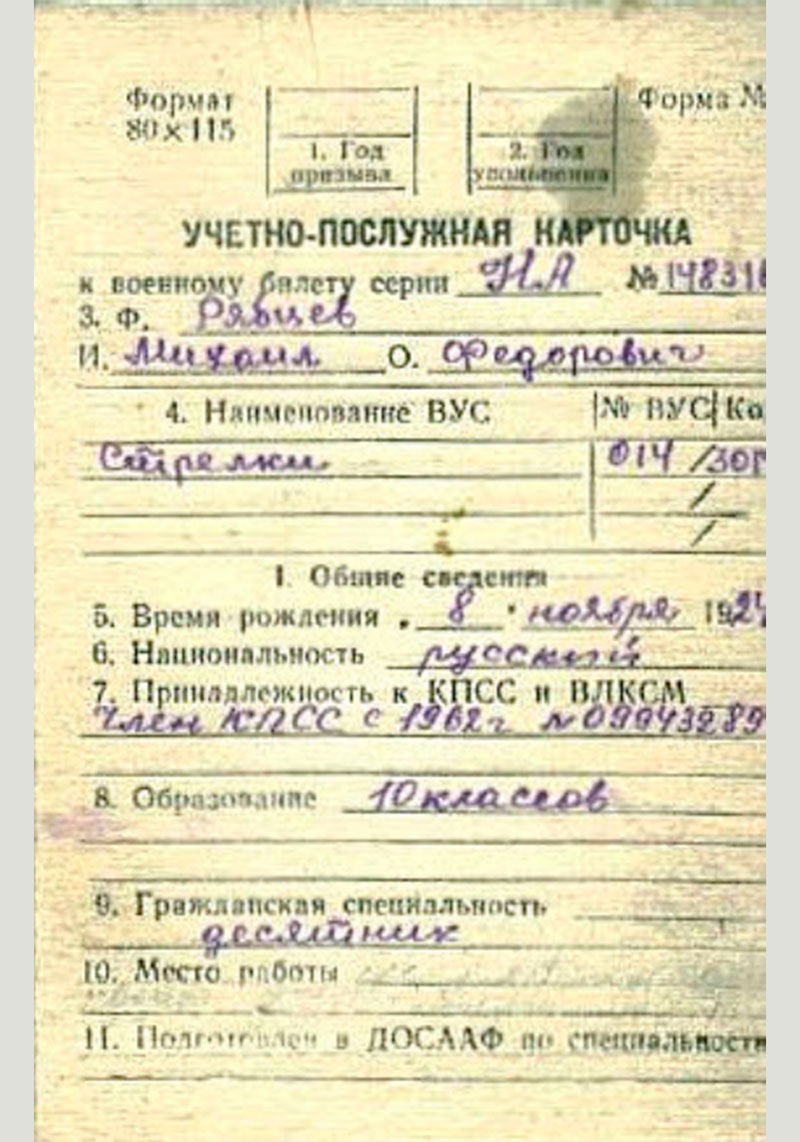 Формат
80×115
1. Год
призыва
2. Год
увольнения
Форма №
УЧЕТНО-ПОСЛУЖНАЯ КАРТОЧКА
к военному билету серии НА № 148316
3. Ф. Рявцев
И. Михаил О. Федорович
4. Наименование ВУС № ВУС Ко
Стрелки 014 /
/
/
I. Общие сведения
5. Время рождения „ 8 " ноября 1924
6. Национальность русский
7. Принадлежность к КПСС и ВЛКСМ
Член КПСС с 1962 г №09943289
8. Образование 10 классов
9. Гражданская специальность
десятник
10. Место работы
11. Подготовлен в ДОСААФ по специальности